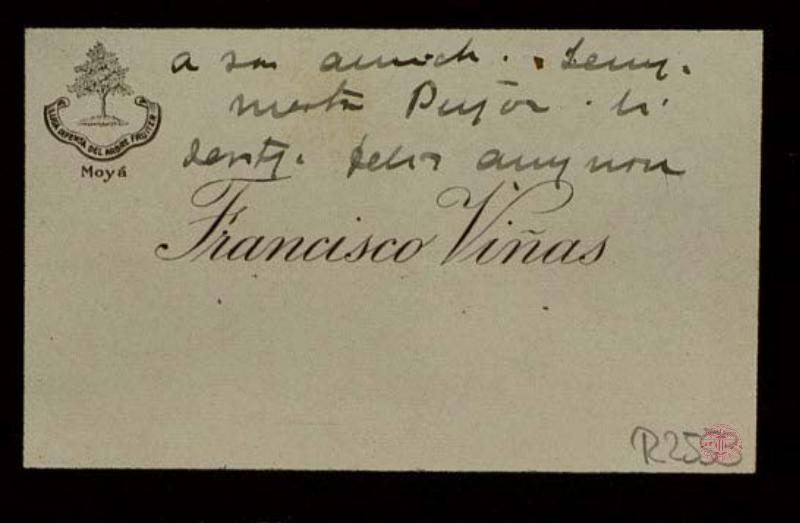 LLIGA DEFENSA DEL ARBRE FRUITER
Moyá
a son amich
mestre Pujol li
feliç any nou
Francisco Viñas